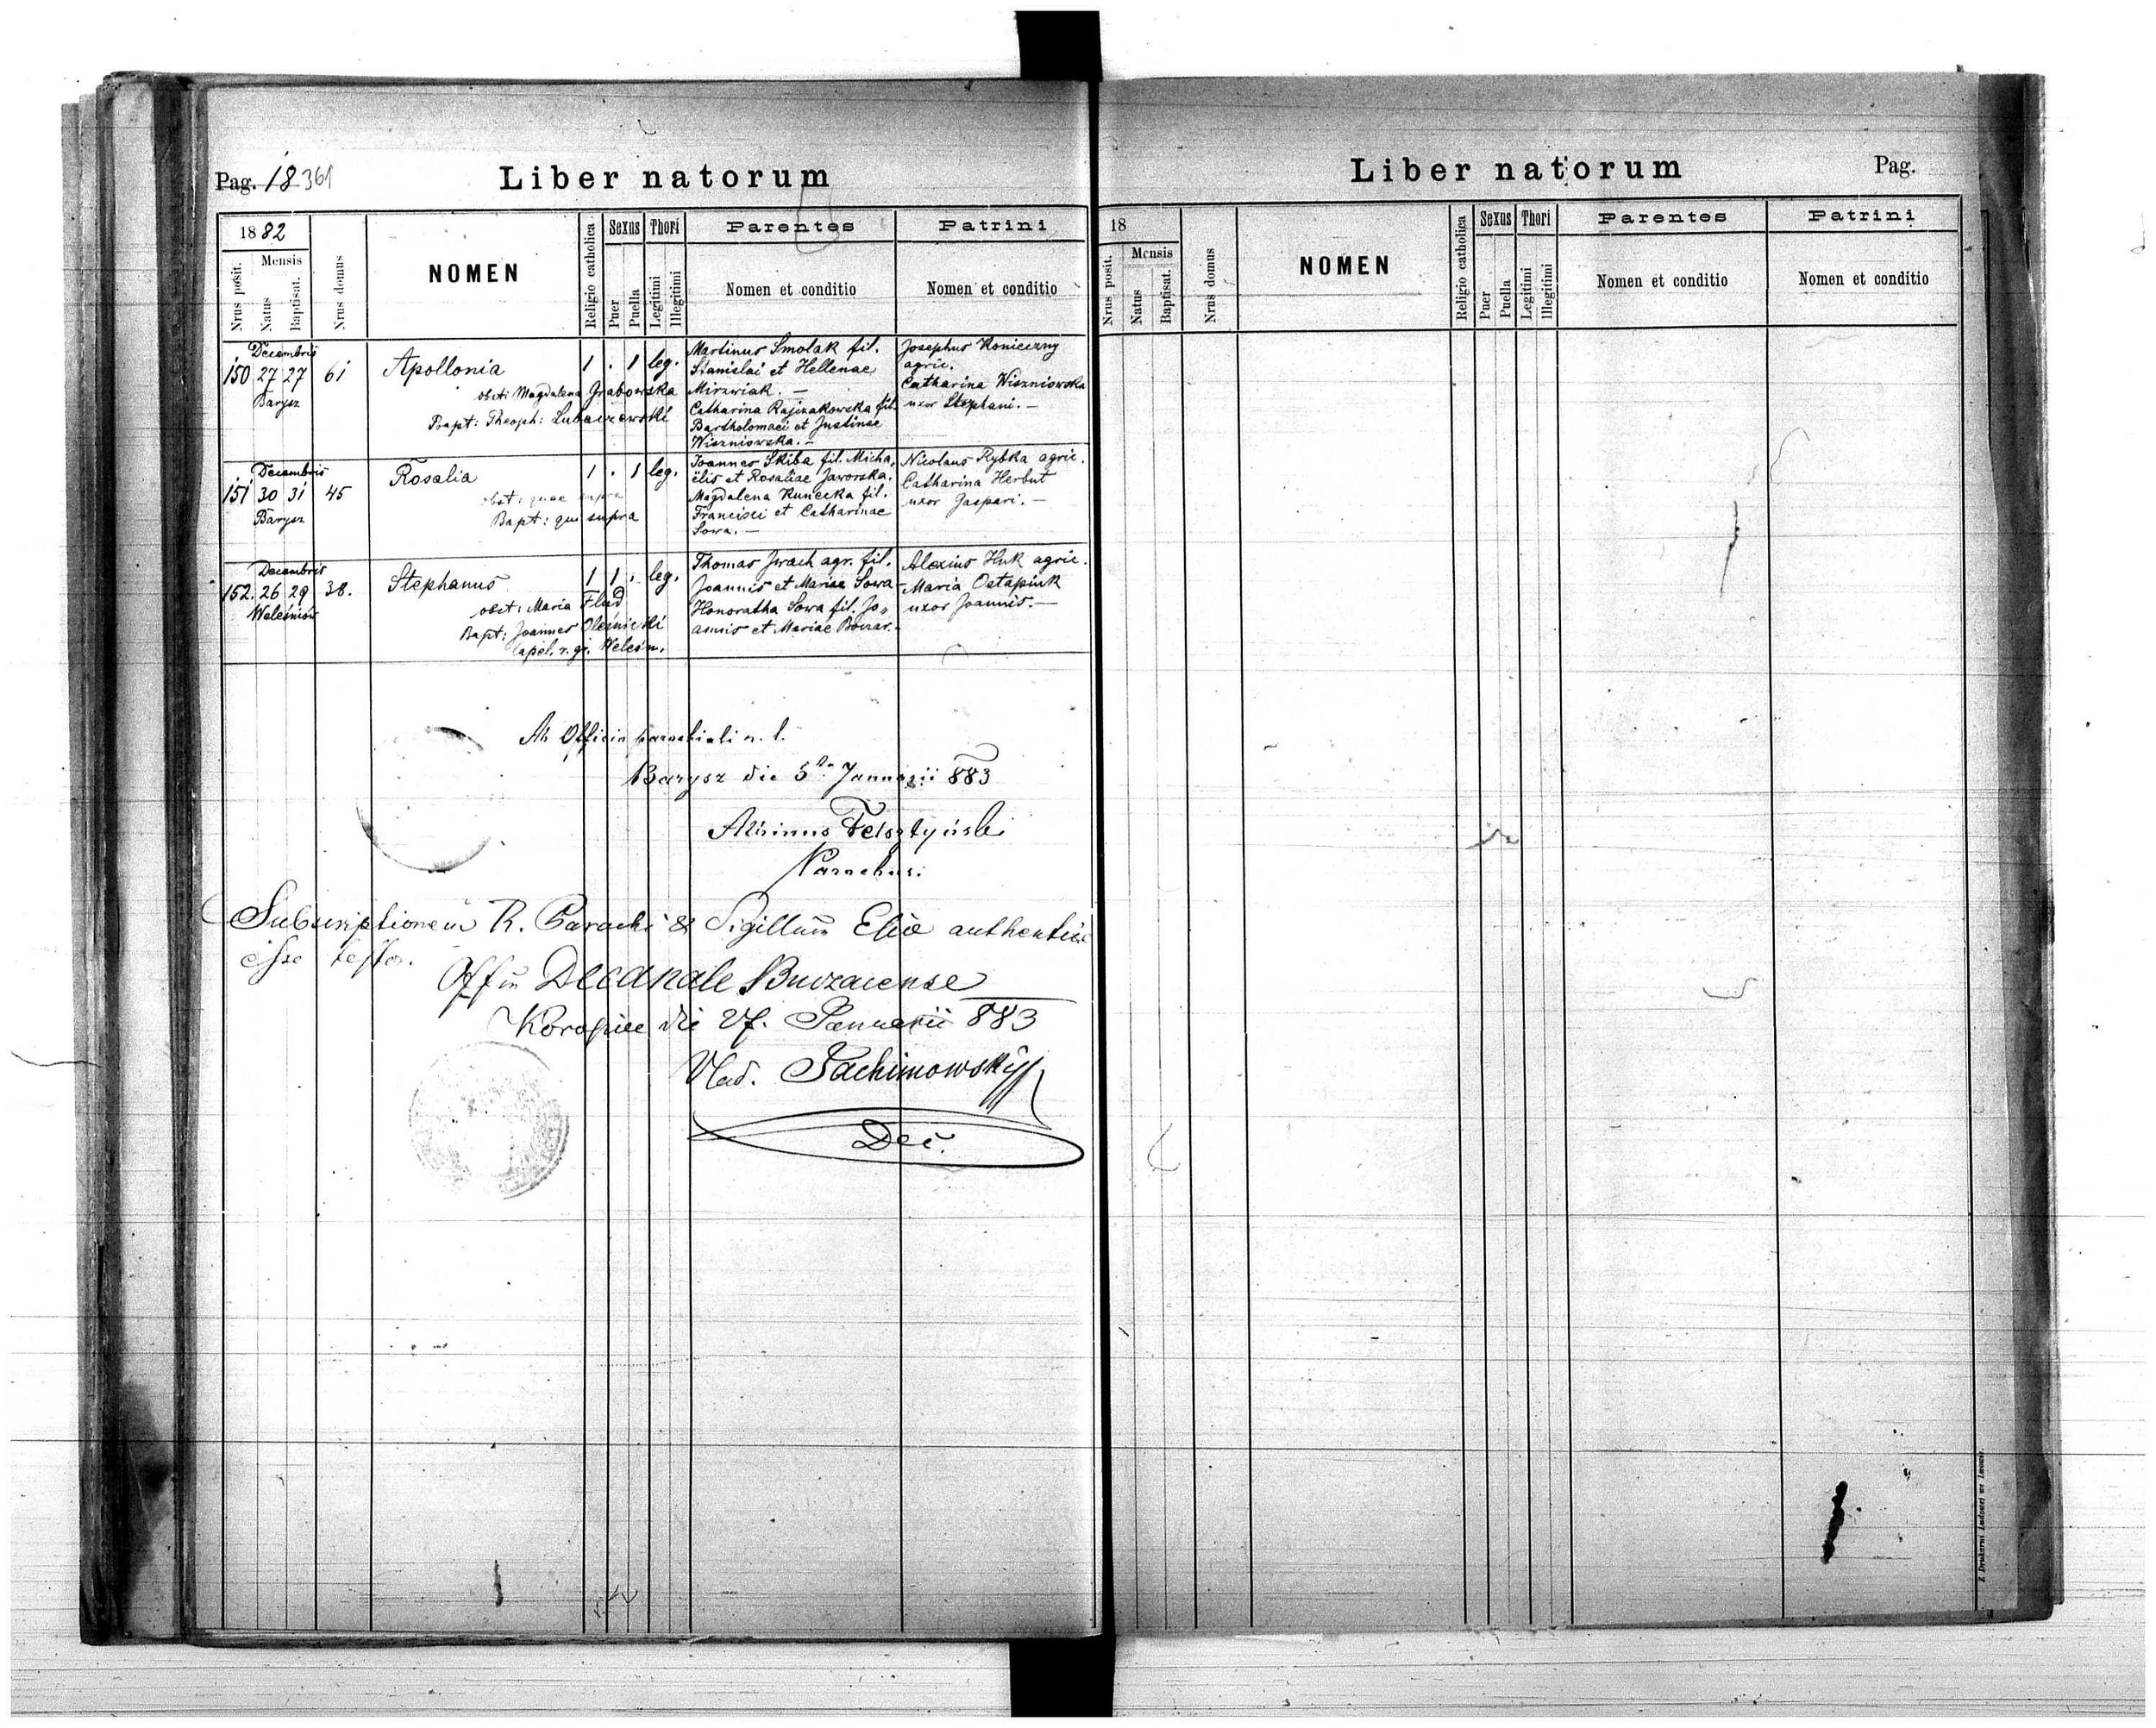 Pag. 18 361
Liber natorum
1882
Nrus posit.
Mensis
Natus
Baptisat.
Nrus domus
NOMEN
Religio catholica
Sexus
Puer
Puella
Thori
Legitimi
Illegitimi
Parentes
Nomen et conditio
Patrini
Nomen et conditio
Decembris
150 27 27 61
Barysz
Apollonia
obst: Magdalena Grabowska
Bapt: Theoph: Lubaczewski
1 . 1 leg.
Martinus Smolak fil.
Stanislai et Hellenae
Mirzwiak. —
Catharina Rajczakowska fil.
Bartholomaei et Justinae
Wiszniowska. —
Josephus Konieczny
agric.
Catharina Wiszniowska
uxor Stephani. —
Decembris
151 30 31 45
Barysz
Rosalia
obst: quae supra
Bapt: qui supra
1 . 1 leg.
Joannes Skiba fil. Micha-
ëlis et Rosaliae Jaworska.
Magdalena Kunecka fil.
Francisci et Catharinae
Sowa. —
Nicolaus Rybka agric.
Catharina Herbut
uxor Gaspari. —
Decembris
152. 26 29 38.
Weleśniów
Stephanus
obst: Maria Flud
Bapt: Joannes Oleśnicki
Capel. r. gr. Weleśn.
1 1 . leg.
Thomas agr. fil.
Joannis et Mariae Sowa
Honoratha Sowa fil. Jo„
annis et Mariae
Alexius Huk agric.
Maria Ostapiuk
uxor Joannis. —
Ab Officio parochiali r. l.
Barysz die 5ta Januarii 883
Felsztyński
Parochus.
Subscriptionem R. Parochi & Sigillum authentica
esse testor.
Decanale Buczacense
die Januarii 883
Vlad. Jachimowsky
Dec.
Liber natorum
Pag.
18
Nrus posit.
Mensis
Natus
Baptisat.
Nrus domus
NOMEN
Religio catholica
Sexus
Puer
Puella
Thori
Legitimi
Illegitimi
Parentes
Nomen et conditio
Patrini
Nomen et conditio
Z Drukarni Ludowej we Lwowie.